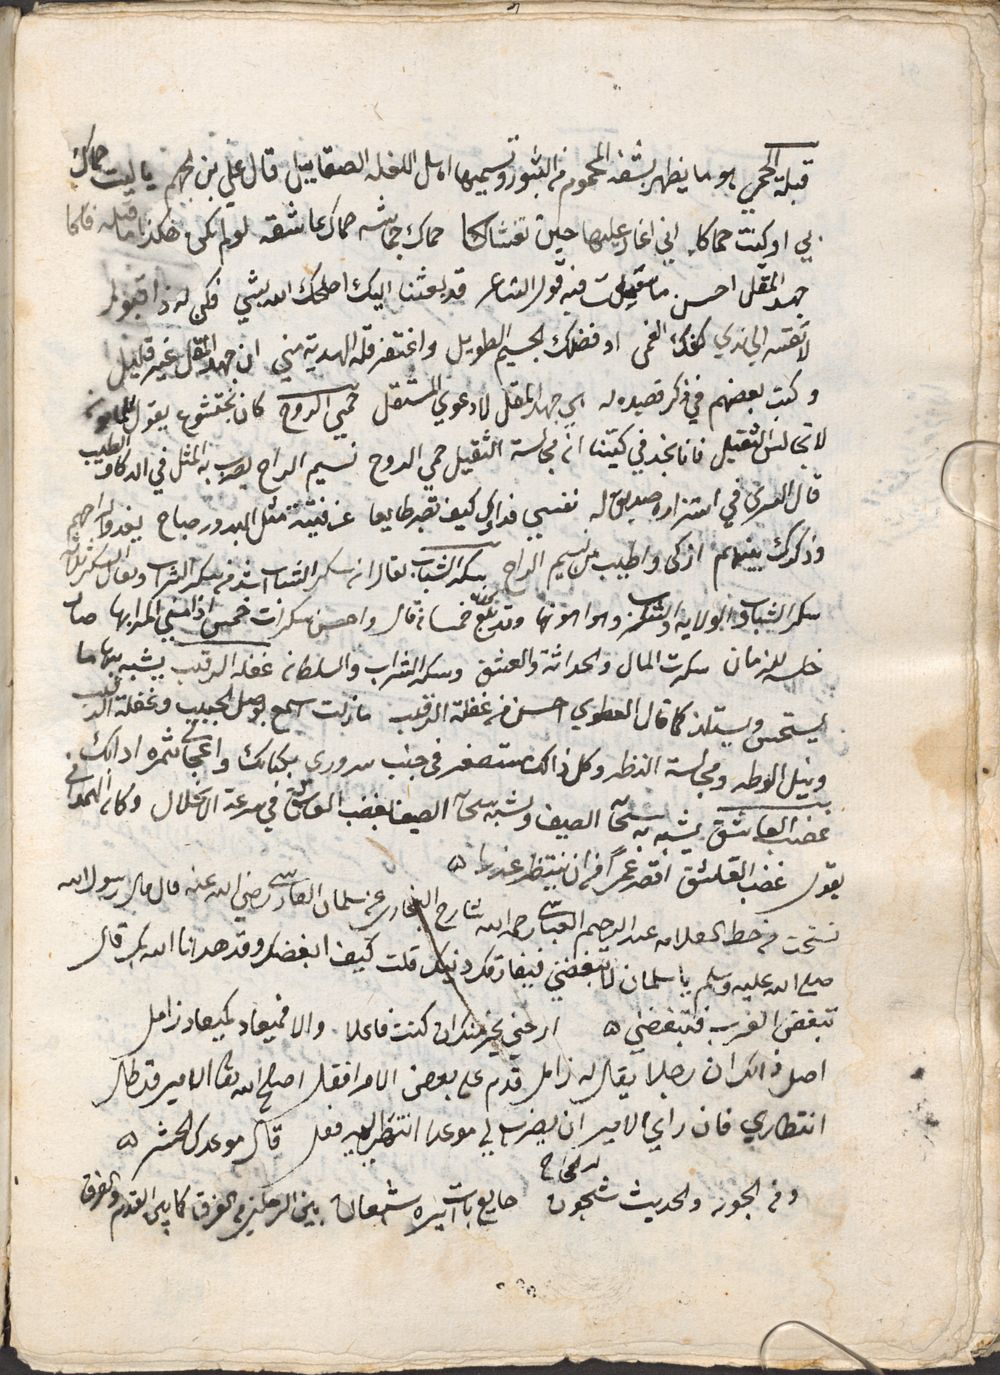 قبلة الحمى هو ما يظهر بشفة المحموم من البثور وتسميها اهل اللغة الصقابيل قال علي بن الجهم يا ليت حماك
بي او كنت حماكا اني اغار عليها حين تغشاكا حماك جماشة حماك عاشقة لو لم تكن هكذا ما قبلت فاكا
جهد المقل احسن ما قيلت فيه قول الشاعر قد بعثنا اليك اصلحك الله بشي فكن له ذا قبول
لا تقسه الى ندي كفك الغمر او فضلك الجسيم الطويل واغتفر قلة الهدية مني ان جهد المقل غير قليل
وكتب بعضهم في ذكر قصيده له هي جهد المقل لا دعوي المستقل حمى الروح كان بختيشوع يقول للمامون
لا تجالس الثقيل فانا نجد في كتبنا ان مجالسة الثقيل حمى الروح نسيم الراح يضرب به المثل في الذكا والطيب
قال السري في استزاره صديق له نفسي فداوك كيف تصبر طايعا عن فتية مثل البدور صباح
وذكرك بينهم ازكى واطيب من نسيم الراح سكر الشباب يقال انه سكر الشباب اشد من سكر الشراب ويقال السكر ثلاثة
سكر الشباب والولاية والسكر وهو اهونها وقد بلغ خمسا من قال واحسن سكرات خمس اذا مني المرء بها صار
خلسه للزمان سكرة المال والحداثة والعشق وسكر الشراب والسلطان غفلة الرقيب يشبه بها ما
يستحسن ويستلذ كما قال العطوي احسن من غفلة الرقيب ما زلت اسمع بوصل الحبيب وغفلة الرقيب
ونيل الوطر ومجالسة النظر وكل ذالك مستصغر في جنب سروري بكتابك واعجابي
غضب العاشق يشبه به سحاب الصيف ويشبه سحاب الصيف بغضب العاشق في سرعة الانحلال وكان
يقول غضب العاشق اقصر عمرا من ان ينتظر عذرا ه
نسخت من خط العلامه عبد الرحيم العباسي رحمه الله شارح البخاري عن سلمان الفارسي رضي الله عنه قال قال رسول الله
صلى الله عليه وسلم يا سلمان لا تبغضني فيفارقك دينك قلت كيف ابغضك وقد هدانا الله بك قال
تبغض العرب فتبغضني ه ارحني بخير منك ان كنت فاعلا والا فميعاد كميعاد زامل
اصل ذالك ان رجلا يقال له زامل قدم على بعض الامرا فقال اصلح الله تعالى الامير قد طال
انتظاري فان راى الامير ان يضرب لي موعدا انتظر اليه فعل قال موعدك الحشر ه
ومن المجون والحديث شجون